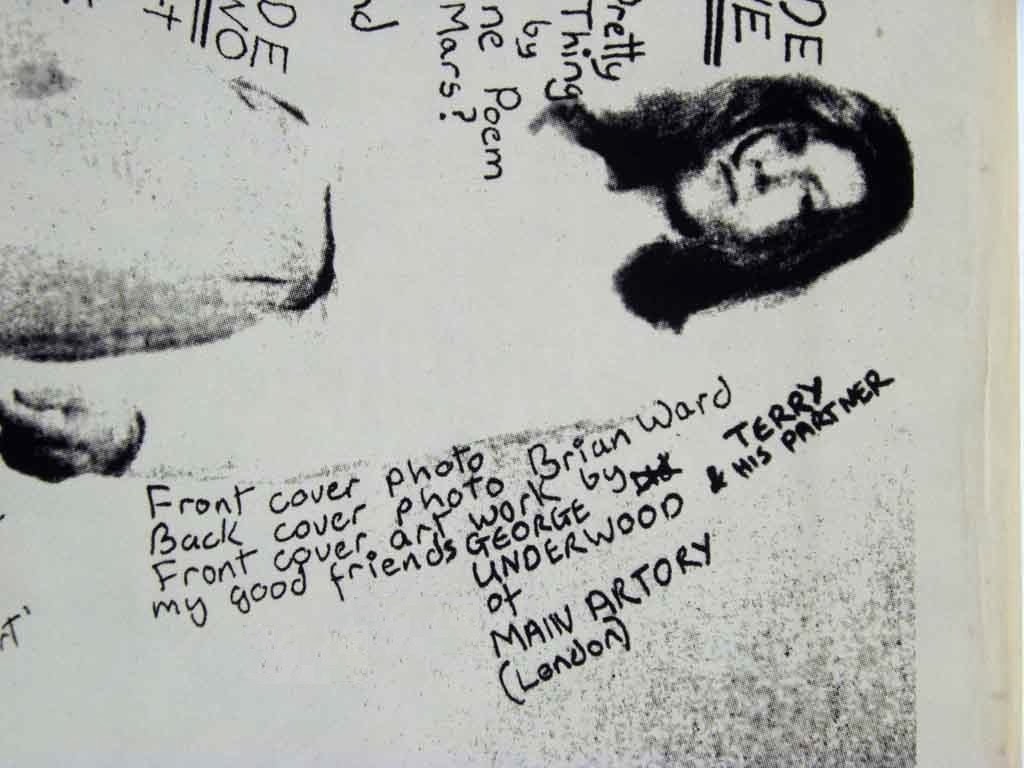 DE
Pretty
Thing
by
ne Poem
Mars?
DE
WO
Front cover photo
Back cover photo Brian Ward
Front cover art work by
my good friends GEORGE
UNDERWOOD & TERRY
& HIS PARTNER
of
MAIN ARTORY
(London)